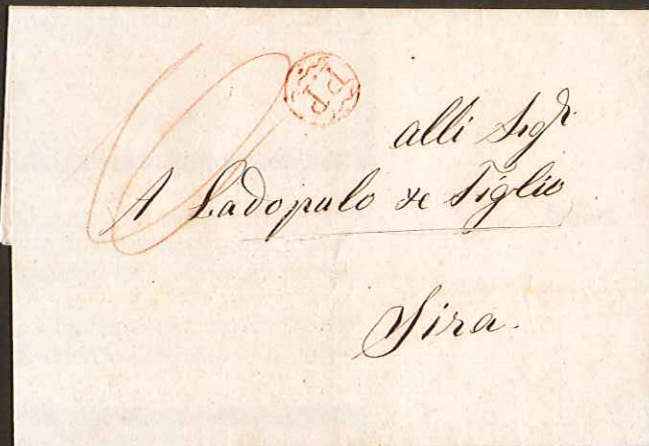 P.P.
alli Sigri
A Ladopulo & Figlio
Sira.